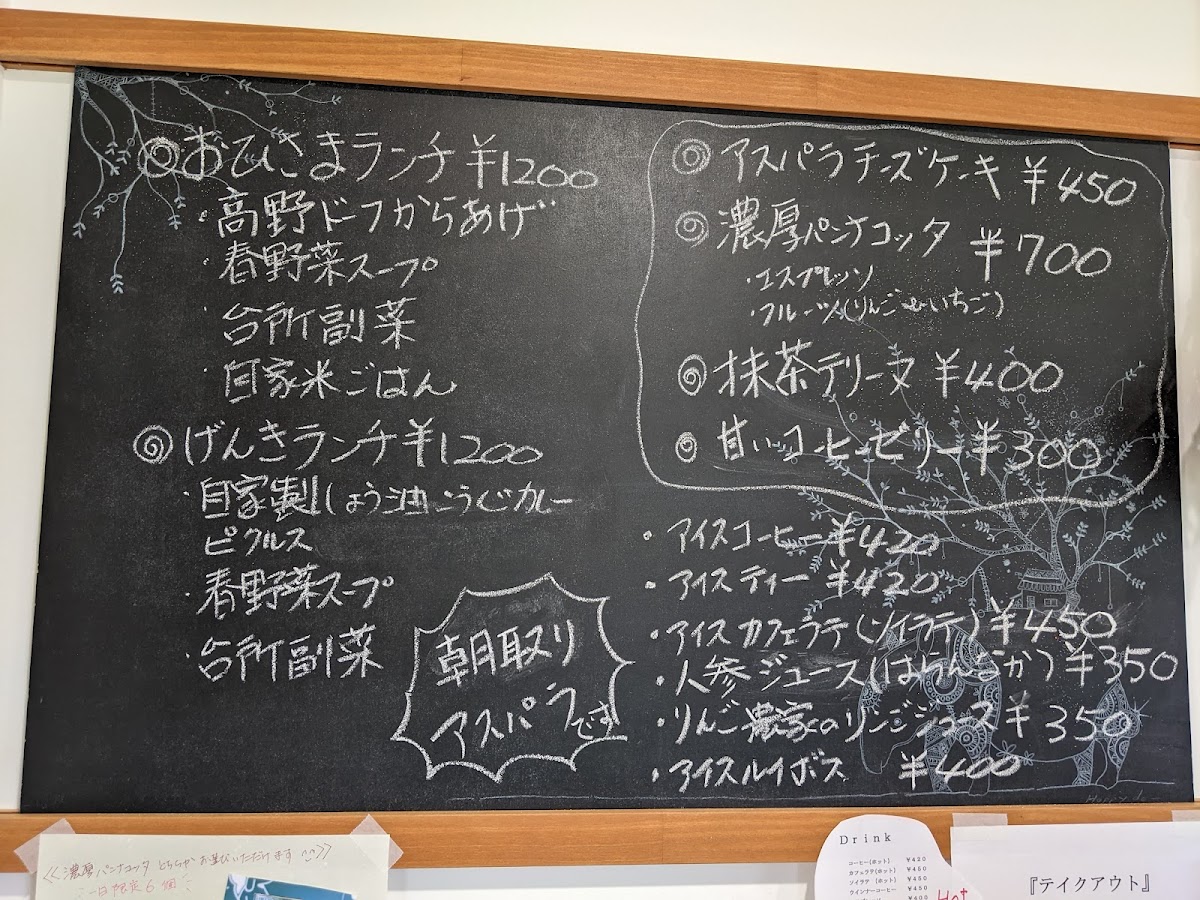 おひさまランチ ¥1200
・高野ドーフからあげ
・春野菜スープ
・台所副菜
・自家米ごはん
げんきランチ ¥1200
・自家製しょう油こうじカレー
ピクルス
・春野菜スープ
・台所副菜
朝取り
アスパラです
アスパラチーズケーキ ¥450
濃厚パンナコッタ ¥700
・エスプレッソ
・フルーツ(りんごorいちご)
抹茶テリーヌ ¥400
甘いコーヒーゼリー ¥300
・アイスコーヒー ¥420
・アイスティー ¥420
・アイスカフェラテ(ソイラテ) ¥450
・人参ジュース(はらんなか) ¥350
・りんご農家のリンゴジュース ¥350
・アイスルイボス ¥400
<<濃厚パンナコッタ どちらかお選びいただけます ^^>>
一日限定6個
Drink
コーヒー(ホット) ¥420
カフェラテ(ホット) ¥450
ソイラテ (ホット) ¥450
ウインナーコーヒー ¥450
¥400
Hot
『テイクアウト』